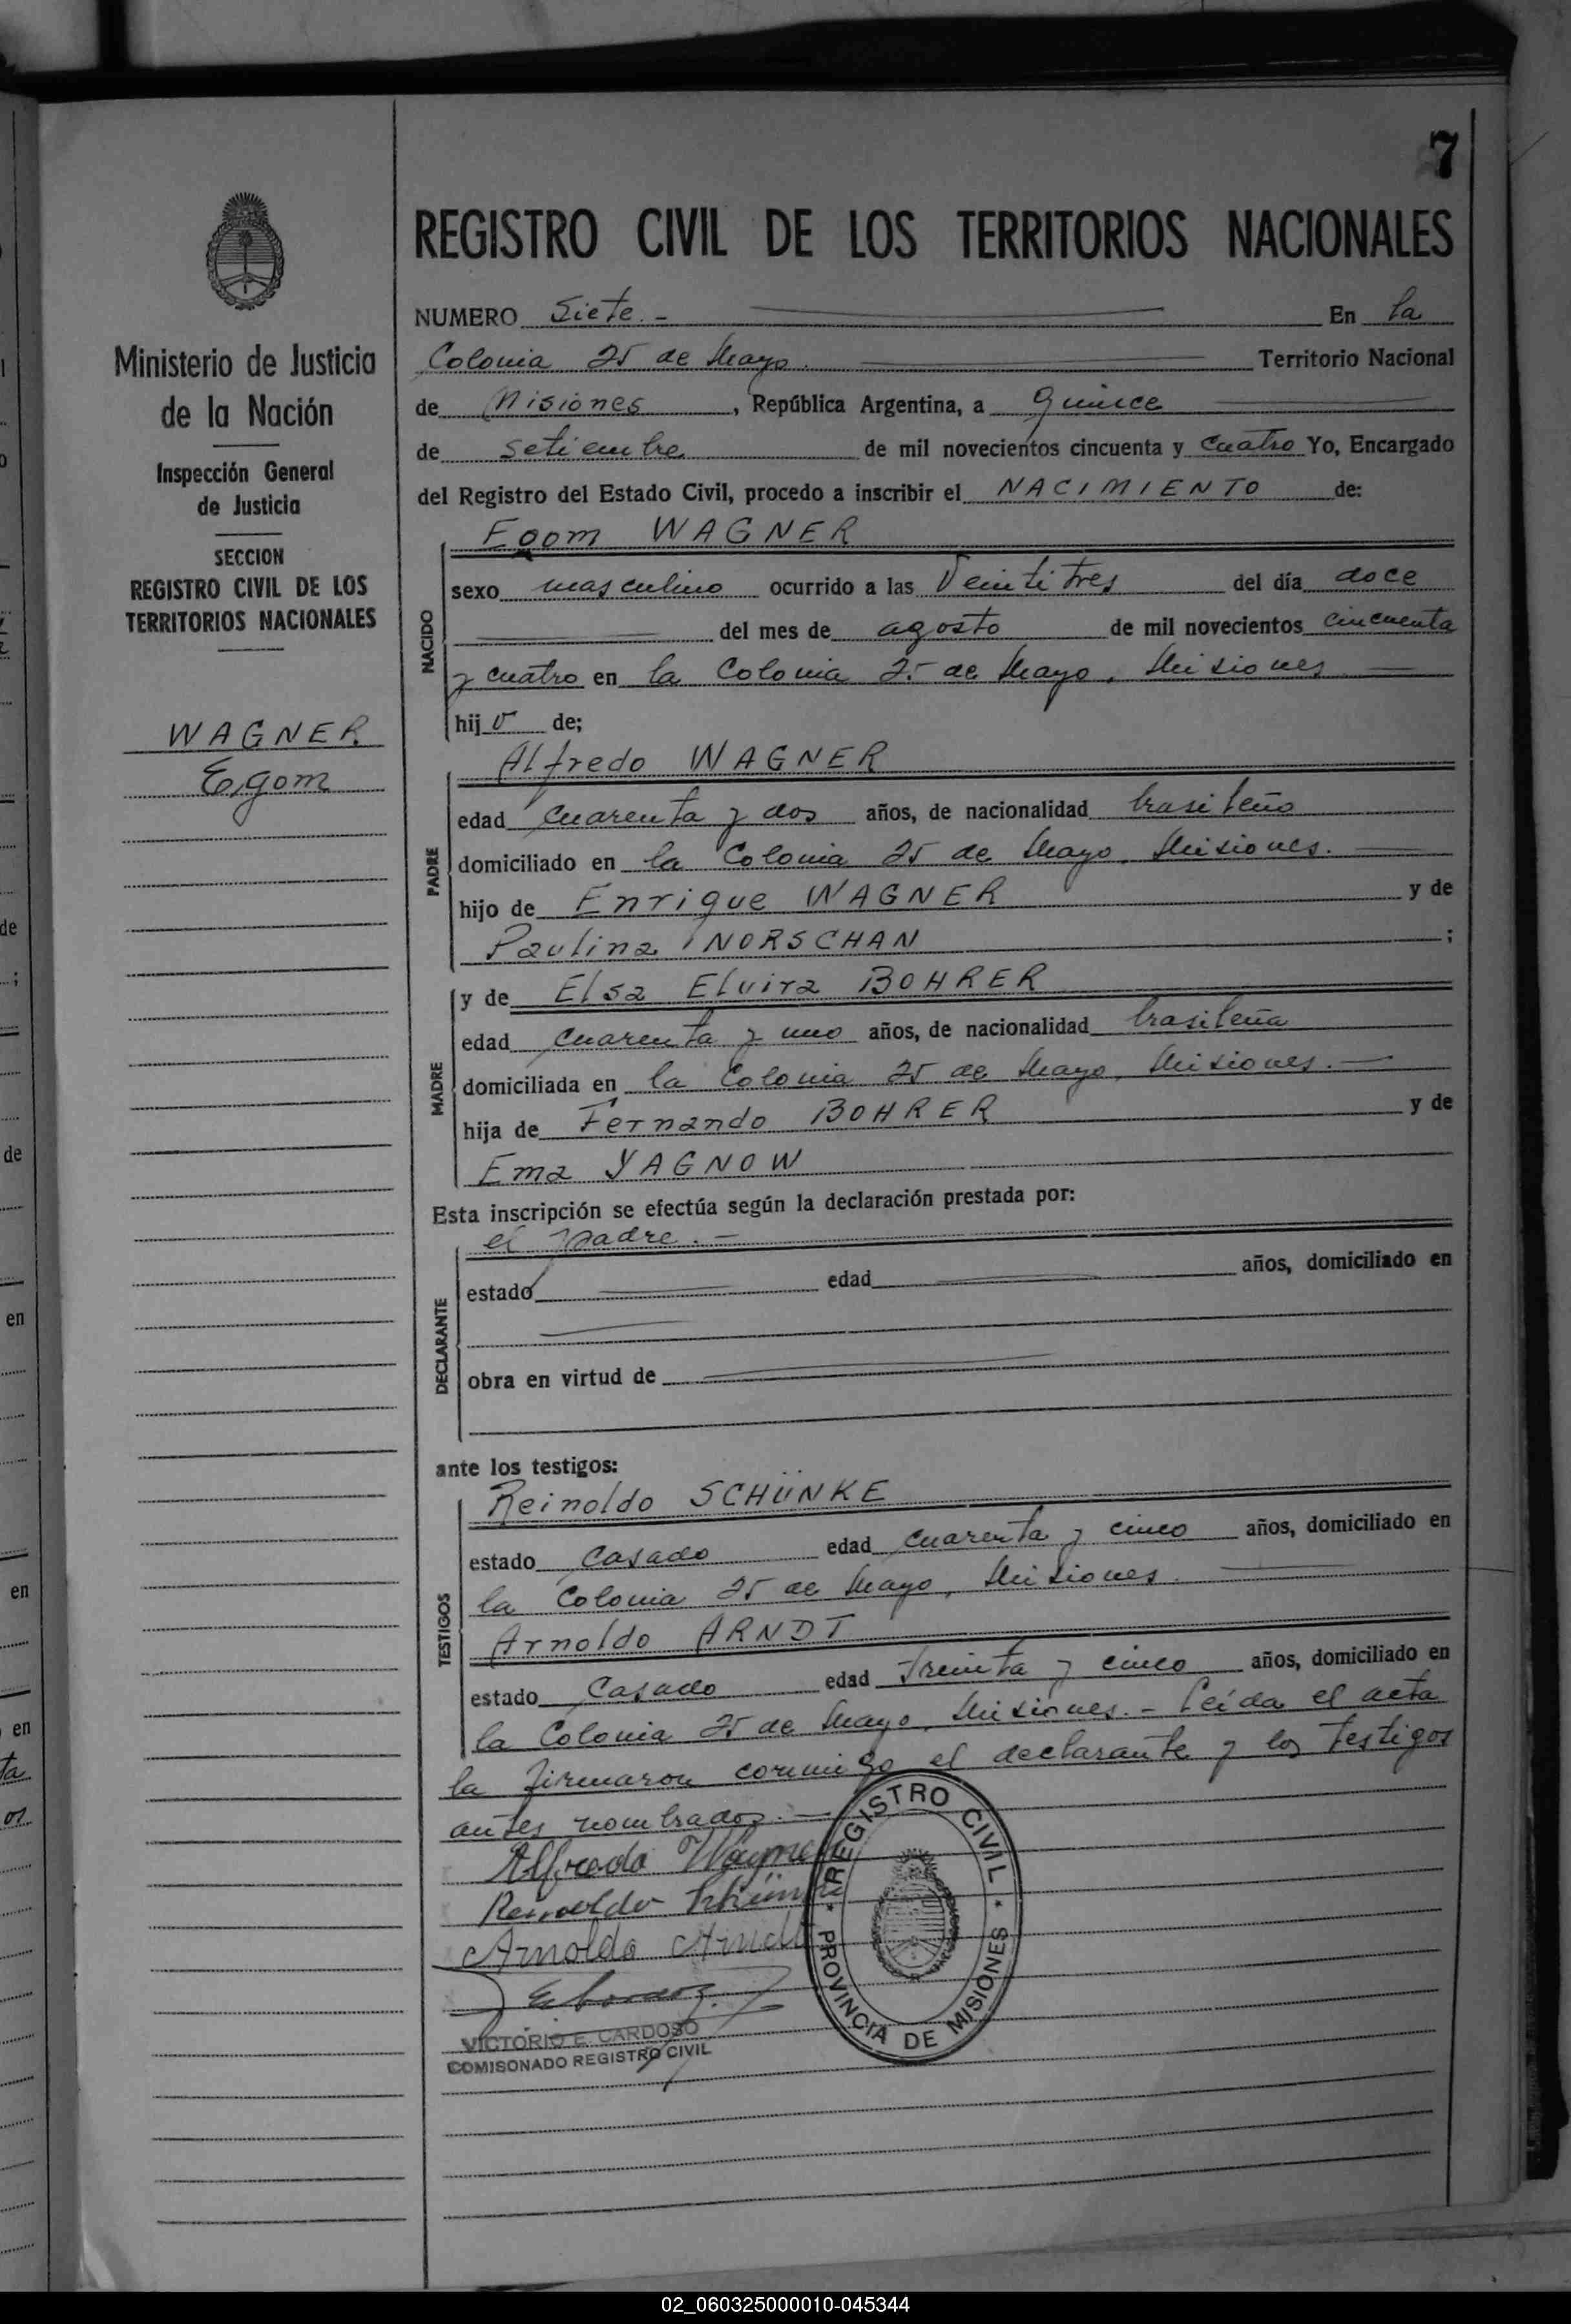 7
REGISTRO CIVIL DE LOS TERRITORIOS NACIONALES
Ministerio de Justicia
de la Nación
Inspección General
de Justicia
SECCION
REGISTRO CIVIL DE LOS
TERRITORIOS NACIONALES
WAGNER
Egom
NUMERO Siete.- En la
Colonia 25 de Mayo. Territorio Nacional
de Misiones, República Argentina, a quince
de setiembre de mil novecientos cincuenta y cuatro Yo, Encargado
del Registro del Estado Civil, procedo a inscribir el NACIMIENTO de:
NACIDO
Egom WAGNER
sexo masculino ocurrido a las Veintitres del día doce
del mes de agosto de mil novecientos cincuenta
y cuatro en la Colonia 25 de Mayo, Misiones
hijo de;
PADRE
Alfredo WAGNER
edad cuarenta y dos años, de nacionalidad brasileño
domiciliado en la Colonia 25 de Mayo, Misiones.
hijo de Enrique WAGNER y de
Paulina NORSCHAN ;
MADRE
y de Elsa Elvira BOHRER
edad cuarenta y uno años, de nacionalidad brasileña
domiciliada en la Colonia 25 de Mayo, Misiones.
hija de Fernando BOHRER y de
Ema YAGNOW
Esta inscripción se efectúa según la declaración prestada por:
DECLARANTE
el padre.-
estado edad años, domiciliado en
obra en virtud de
ante los testigos:
TESTIGOS
Reinoldo SCHÜNKE
estado casado edad cuarenta y cinco años, domiciliado en
la Colonia 25 de Mayo, Misiones.
Arnoldo ARNDT
estado casado edad treinta y cinco años, domiciliado en
la Colonia 25 de Mayo, Misiones.- Leída el acta
la firmaron conmigo el declarante y los testigos
antes nombrados.-
Alfredo Wagner
Reinoldo Schünke
Arnoldo Arndt
VICTORIO E. CARDOSO
COMISONADO REGISTRO CIVIL
REGISTRO CIVIL * PROVINCIA DE MISIONES *
02_060325000010-045344